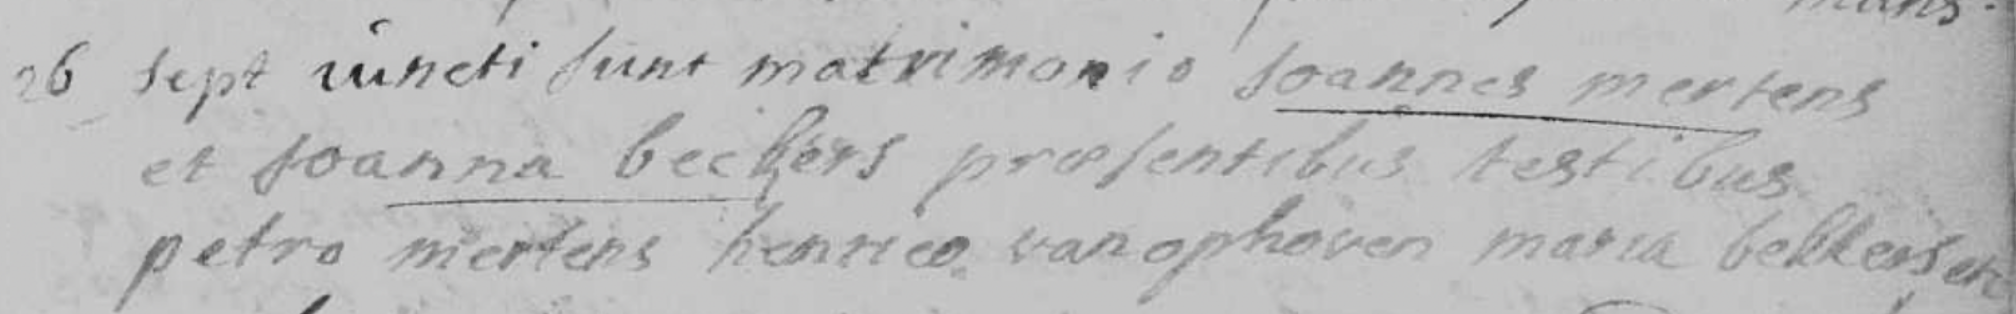 mans.
26 sept iuncti sunt matrimonio Joannes mertens
et Joanna beckers præsentibus testibus
petro mertens henrico van ophoven maria bekkers etc